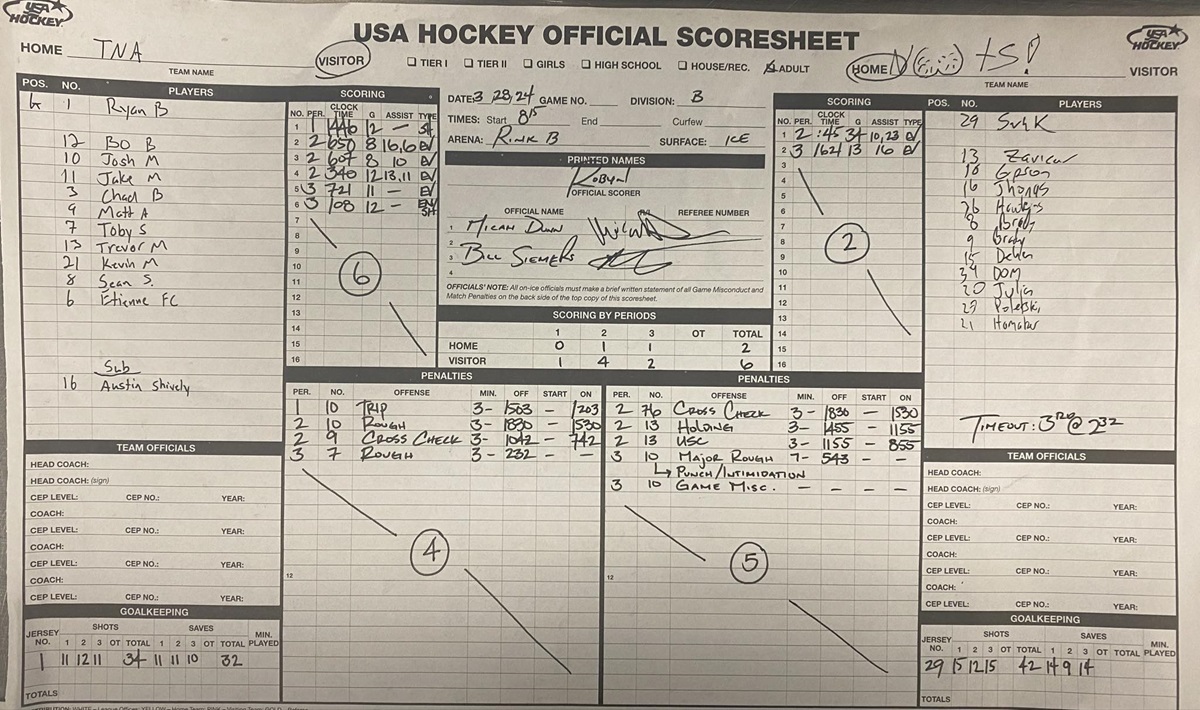 USA HOCKEY
USA HOCKEY OFFICIAL SCORESHEET
USA HOCKEY
HOME TNA VISITOR
TEAM NAME
☐ TIER I ☐ TIER II ☐ GIRLS ☐ HIGH SCHOOL ☐ HOUSE/REC. ☒ ADULT
HOME VISITOR
TEAM NAME
POS. NO. PLAYERS
G 1 Ryan B
12 Bo B
10 Josh M
11 Jake M
3 Chad B
9 Matt A
7 Toby S
13 Trevor M
21 Kevin M
8 Sean S.
6 Etienne FC
Sub
16 Austin Shively
SCORING
NO. PER. CLOCK TIME G ASSIST TYPE
1 1 1440 12 — SH
2 2 650 8 16,6 EV
3 2 607 8 10 EV
4 2 340 12 13,11 EV
5 3 721 11 — EV
6 3 108 12 — EN/SH
7
8
9
10
11
12
13
14
15
16
6
DATE: 3,28,24 GAME NO. DIVISION: B
TIMES: Start 815 End Curfew
ARENA: RINK B SURFACE: ICE
PRINTED NAMES
Robyn
OFFICIAL SCORER
OFFICIAL NAME REFEREE NUMBER
1 MICAH DUNN
2
3 BILL SIEMERS
4
OFFICIALS' NOTE: All on-ice officials must make a brief written statement of all Game Misconduct and
Match Penalties on the back side of the top copy of this scoresheet.
SCORING BY PERIODS
1 2 3 OT TOTAL
HOME 0 1 1 2
VISITOR 1 4 2 6
SCORING
NO. PER. CLOCK TIME G ASSIST TYPE
1 2 :45 34 10,23 EV
2 3 1621 13 16 EV
3
4
5
6
7
8
9
10
11
12
13
14
15
16
2
POS. NO. PLAYERS
29
13
16
8 Brady
9 Brady
15
34 DOM
20
23
21
TIMEOUT: 3RD @ 232
PENALTIES
PER. NO. OFFENSE MIN. OFF START ON
1 10 TRIP 3- 1503 — 1203
2 10 ROUGH 3- 1830 — 1530
2 9 CROSS CHECK 3- 1042 — 742
3 7 ROUGH 3- 232 — —
12
4
PENALTIES
PER. NO. OFFENSE MIN. OFF START ON
2 76 CROSS CHECK 3- 1830 — 1530
2 13 HOLDING 3- 1455 — 1155
2 13 USC 3- 1155 — 855
3 10 MAJOR ROUGH 7- 543 — —
↳ PUNCH/INTIMIDATION
3 10 GAME MISC. — — — —
12
5
TEAM OFFICIALS
HEAD COACH:
HEAD COACH: (sign)
CEP LEVEL: CEP NO.: YEAR:
COACH:
CEP LEVEL: CEP NO.: YEAR:
COACH:
CEP LEVEL: CEP NO.: YEAR:
COACH:
CEP LEVEL: CEP NO.: YEAR:
GOALKEEPING
JERSEY NO. SHOTS SAVES MIN. PLAYED
1 2 3 OT TOTAL 1 2 3 OT TOTAL
1 11 12 11 34 11 11 10 32
TOTALS
TEAM OFFICIALS
HEAD COACH:
HEAD COACH: (sign)
CEP LEVEL: CEP NO.: YEAR:
COACH:
CEP LEVEL: CEP NO.: YEAR:
COACH:
CEP LEVEL: CEP NO.: YEAR:
COACH:
CEP LEVEL: CEP NO.: YEAR:
GOALKEEPING
JERSEY NO. SHOTS SAVES MIN. PLAYED
1 2 3 OT TOTAL 1 2 3 OT TOTAL
29 15 12 15 42 14 9 14
TOTALS